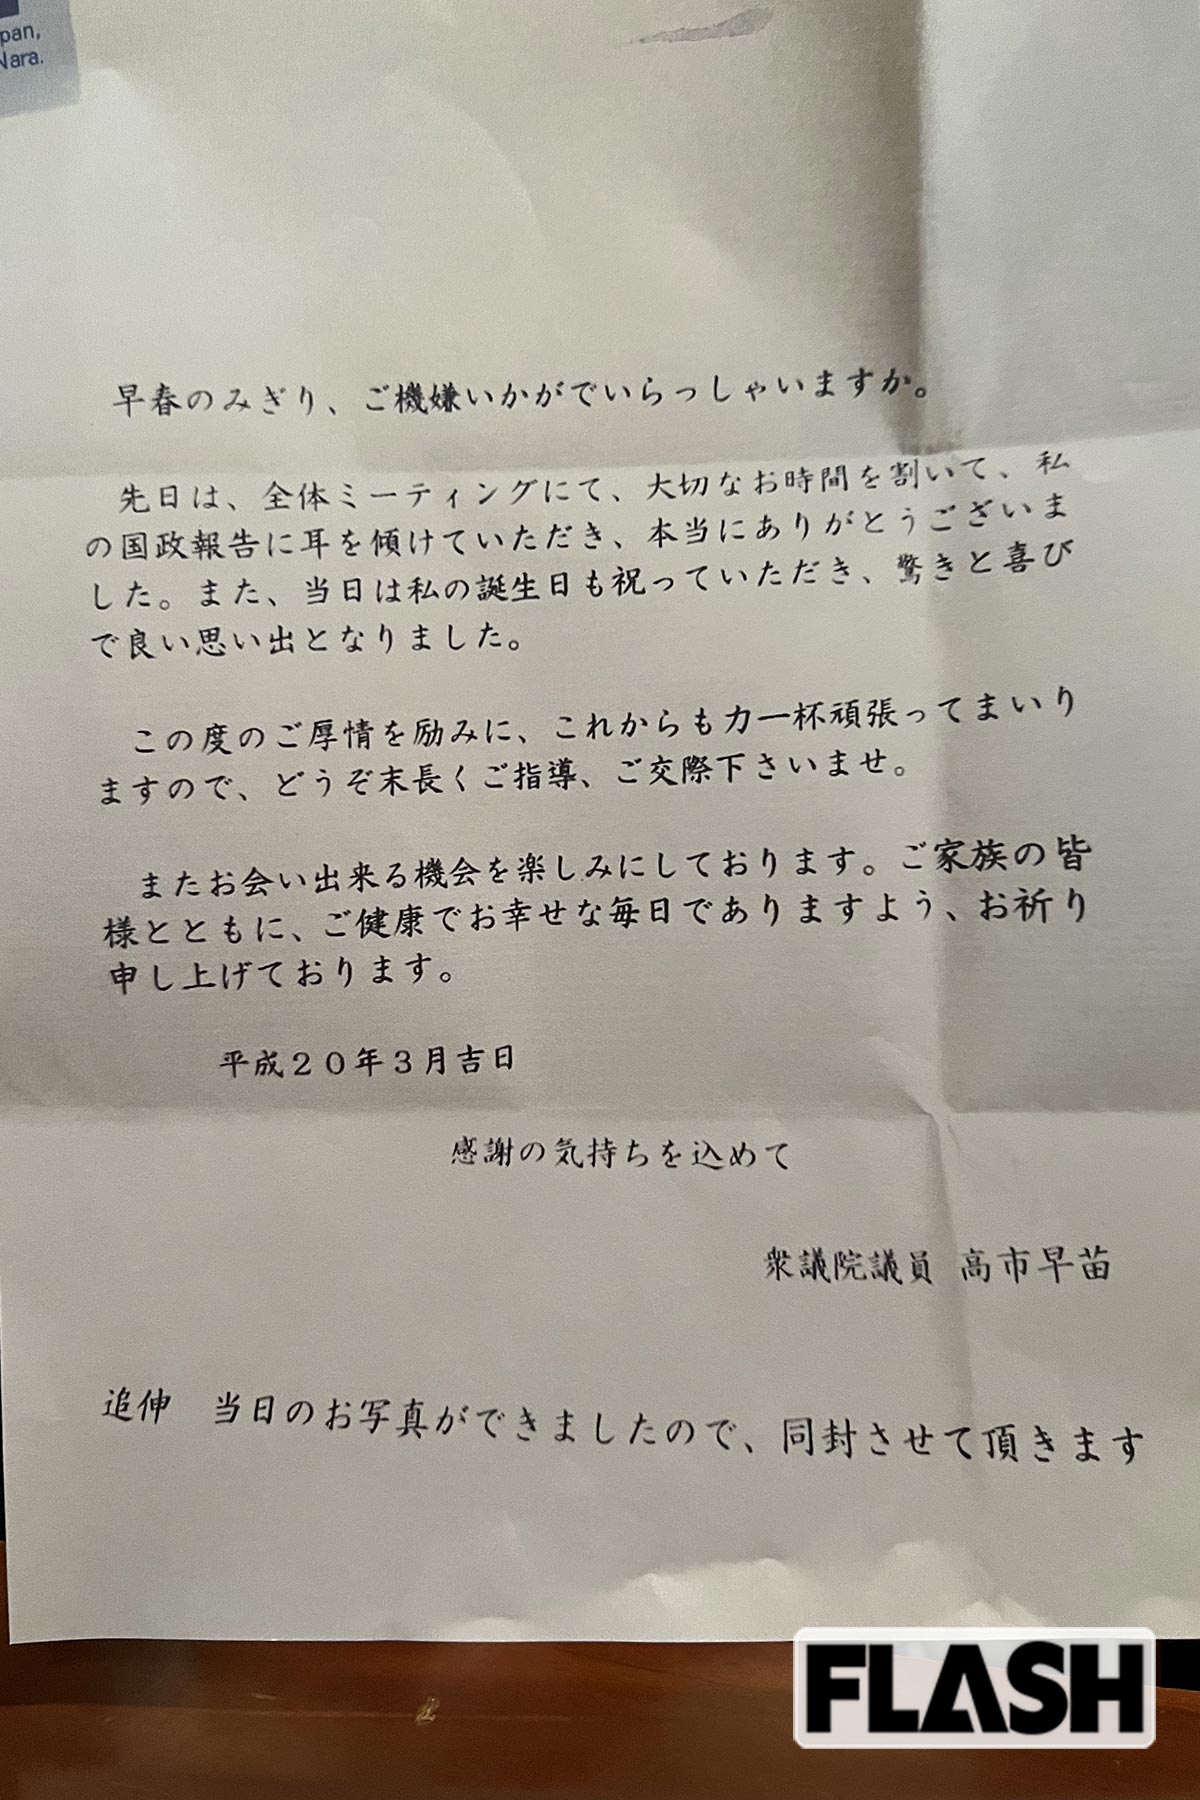 pan,
Nara.
早春のみぎり、ご機嫌いかがでいらっしゃいますか。
先日は、全体ミーティングにて、大切なお時間を割いて、私
の国政報告に耳を傾けていただき、本当にありがとうございま
した。また、当日は私の誕生日も祝っていただき、驚きと喜び
で良い思い出となりました。
この度のご厚情を励みに、これからも力一杯頑張ってまいり
ますので、どうぞ末長くご指導、ご交際下さいませ。
またお会い出来る機会を楽しみにしております。ご家族の皆
様とともに、ご健康でお幸せな毎日でありますよう、お祈り
申し上げております。
平成２０年３月吉日
感謝の気持ちを込めて
衆議院議員 高市早苗
追伸　当日のお写真ができましたので、同封させて頂きます
FLASH